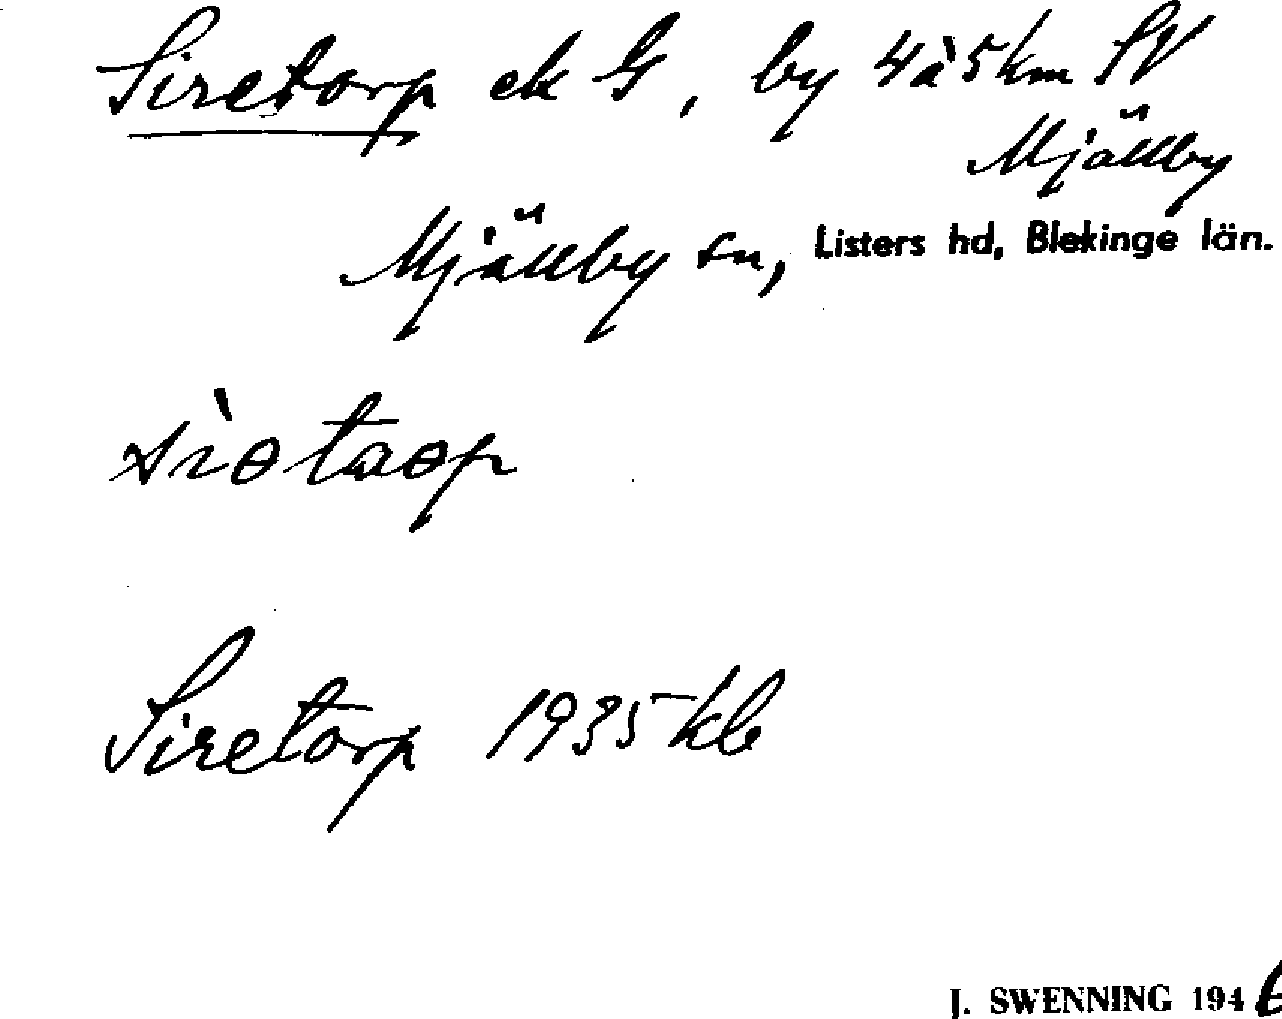 Siretorp ek G, by 4 à 5 km SV
Mjällby
Mjällby sn, Listers hd, Blekinge län.
Siretorp 1935 kb
J. SWENNING 194